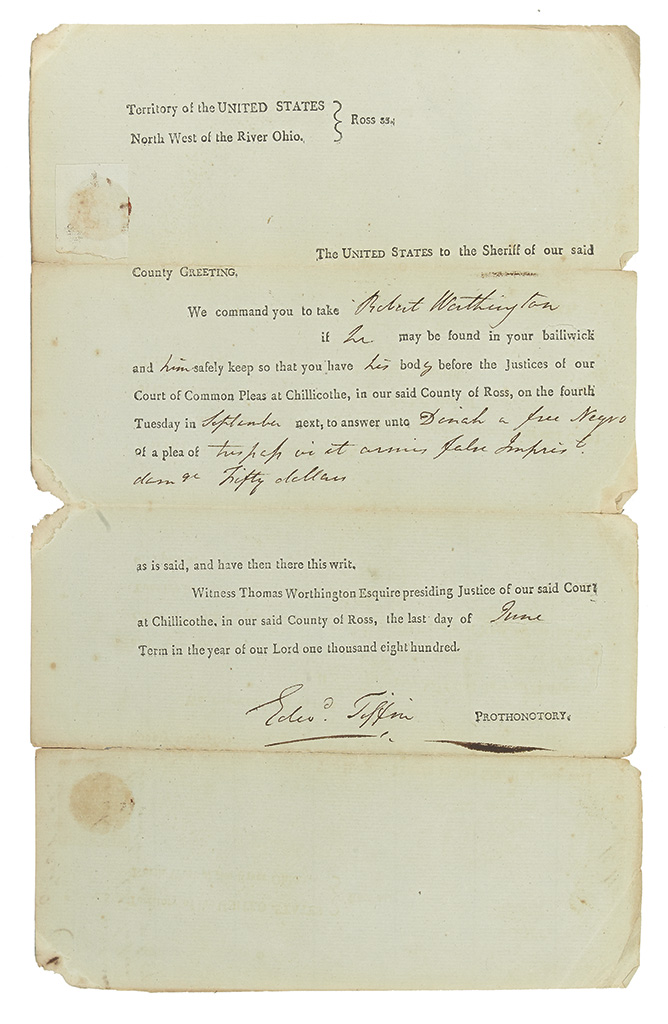 Territory of the UNITED STATES
North West of the River Ohio.
} Ross ss.
The UNITED STATES to the Sheriff of our said
County GREETING,
We command you to take Robert Worthington
if he may be found in your bailiwick
and him safely keep so that you have his body before the Justices of our
Court of Common Pleas at Chillicothe, in our said County of Ross, on the fourth
Tuesday in September next, to answer unto Dinah a free Negro
of a plea of trespass vi et armis false Imprist.
damge Fifty dollars
as is said, and have then there this writ.
Witness Thomas Worthington Esquire presiding Justice of our said Court
at Chillicothe, in our said County of Ross, the last day of June
Term in the year of our Lord one thousand eight hundred.
Edwd. Tiffin PROTHONOTORY.